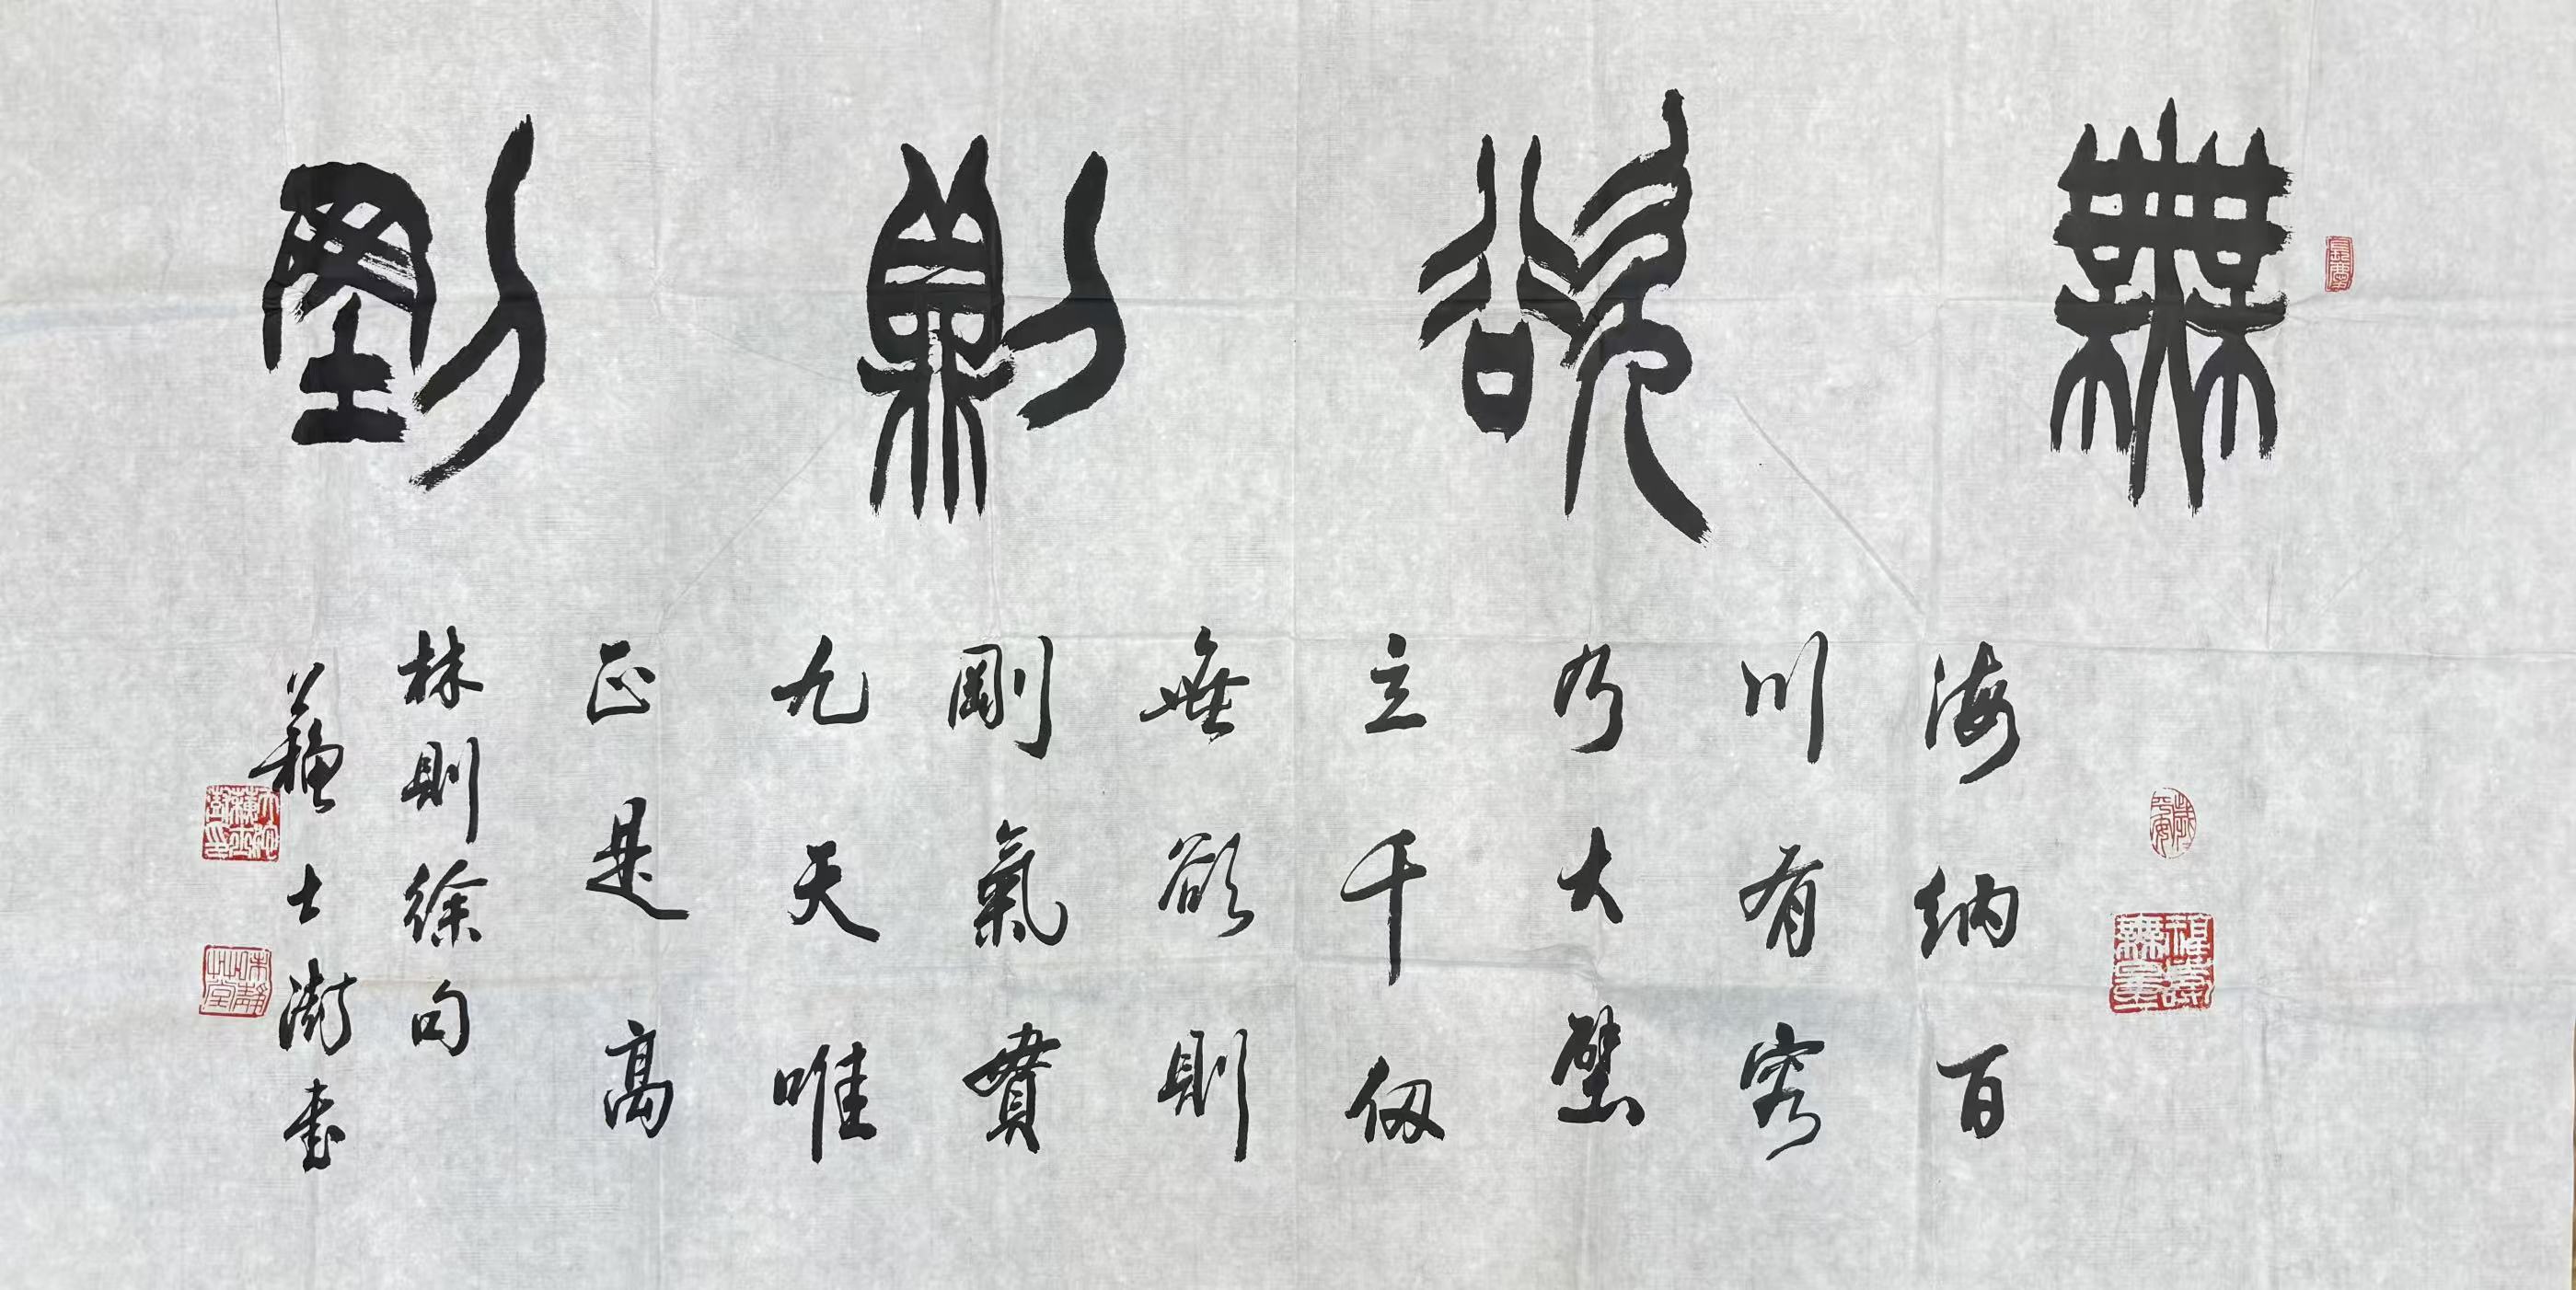 無欲則剛
海納百
川有容
乃大壁
立千仞
無欲則
剛氣貫
九天唯
正是高
林則徐句
蘇士澍書